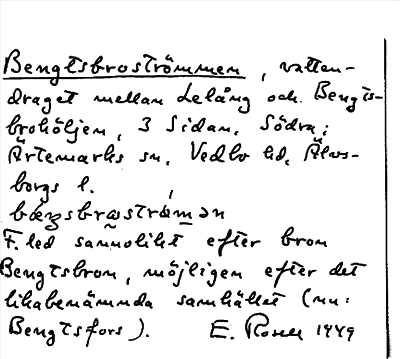 Bengtsbroströmmen, vatten-
draget mellan Lelång och Bengts-
brohöljen, 3 sidan, Södra;
Ärtemarks sn, Vedbo hd, Älvs-
borgs l.
F. led sannolikt efter bron
Bengtsbron, möjligen efter det
likabenämnda samhället (nu:
Bengtsfors). E. Rosell 1949